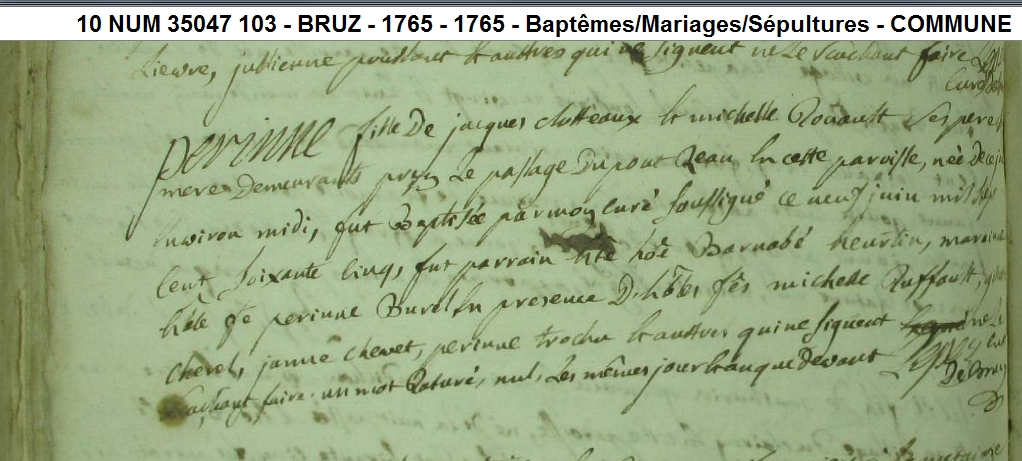 10 NUM 35047 103 - BRUZ - 1765 - 1765 - Baptêmes/Mariages/Sépultures - COMMUNE
Lievre, jullienne proussant & auttres qui ne signent ne le scachant faire
curé de
perinne fille De jacques clotteaux & michelle Rouault ses pere &
mere Demeurants près Le passage Du pont Reau en cette paroisse, née de ce jour
environ midi, fut Baptisée par moy curé soussigné ce neuf juin mil sept
cent soixante cinq, fut parrain hôe Barnabé neurtin, maraine
hôte fe perinne Burel en presence D'hôbles fes michelle Ruffault,
Chevel, janne chevet, perinne trochu & auttres qui ne signent ne le
scachant faire. un mot Raturé, nul. Les mêmes jour & an que devant
De Bruz